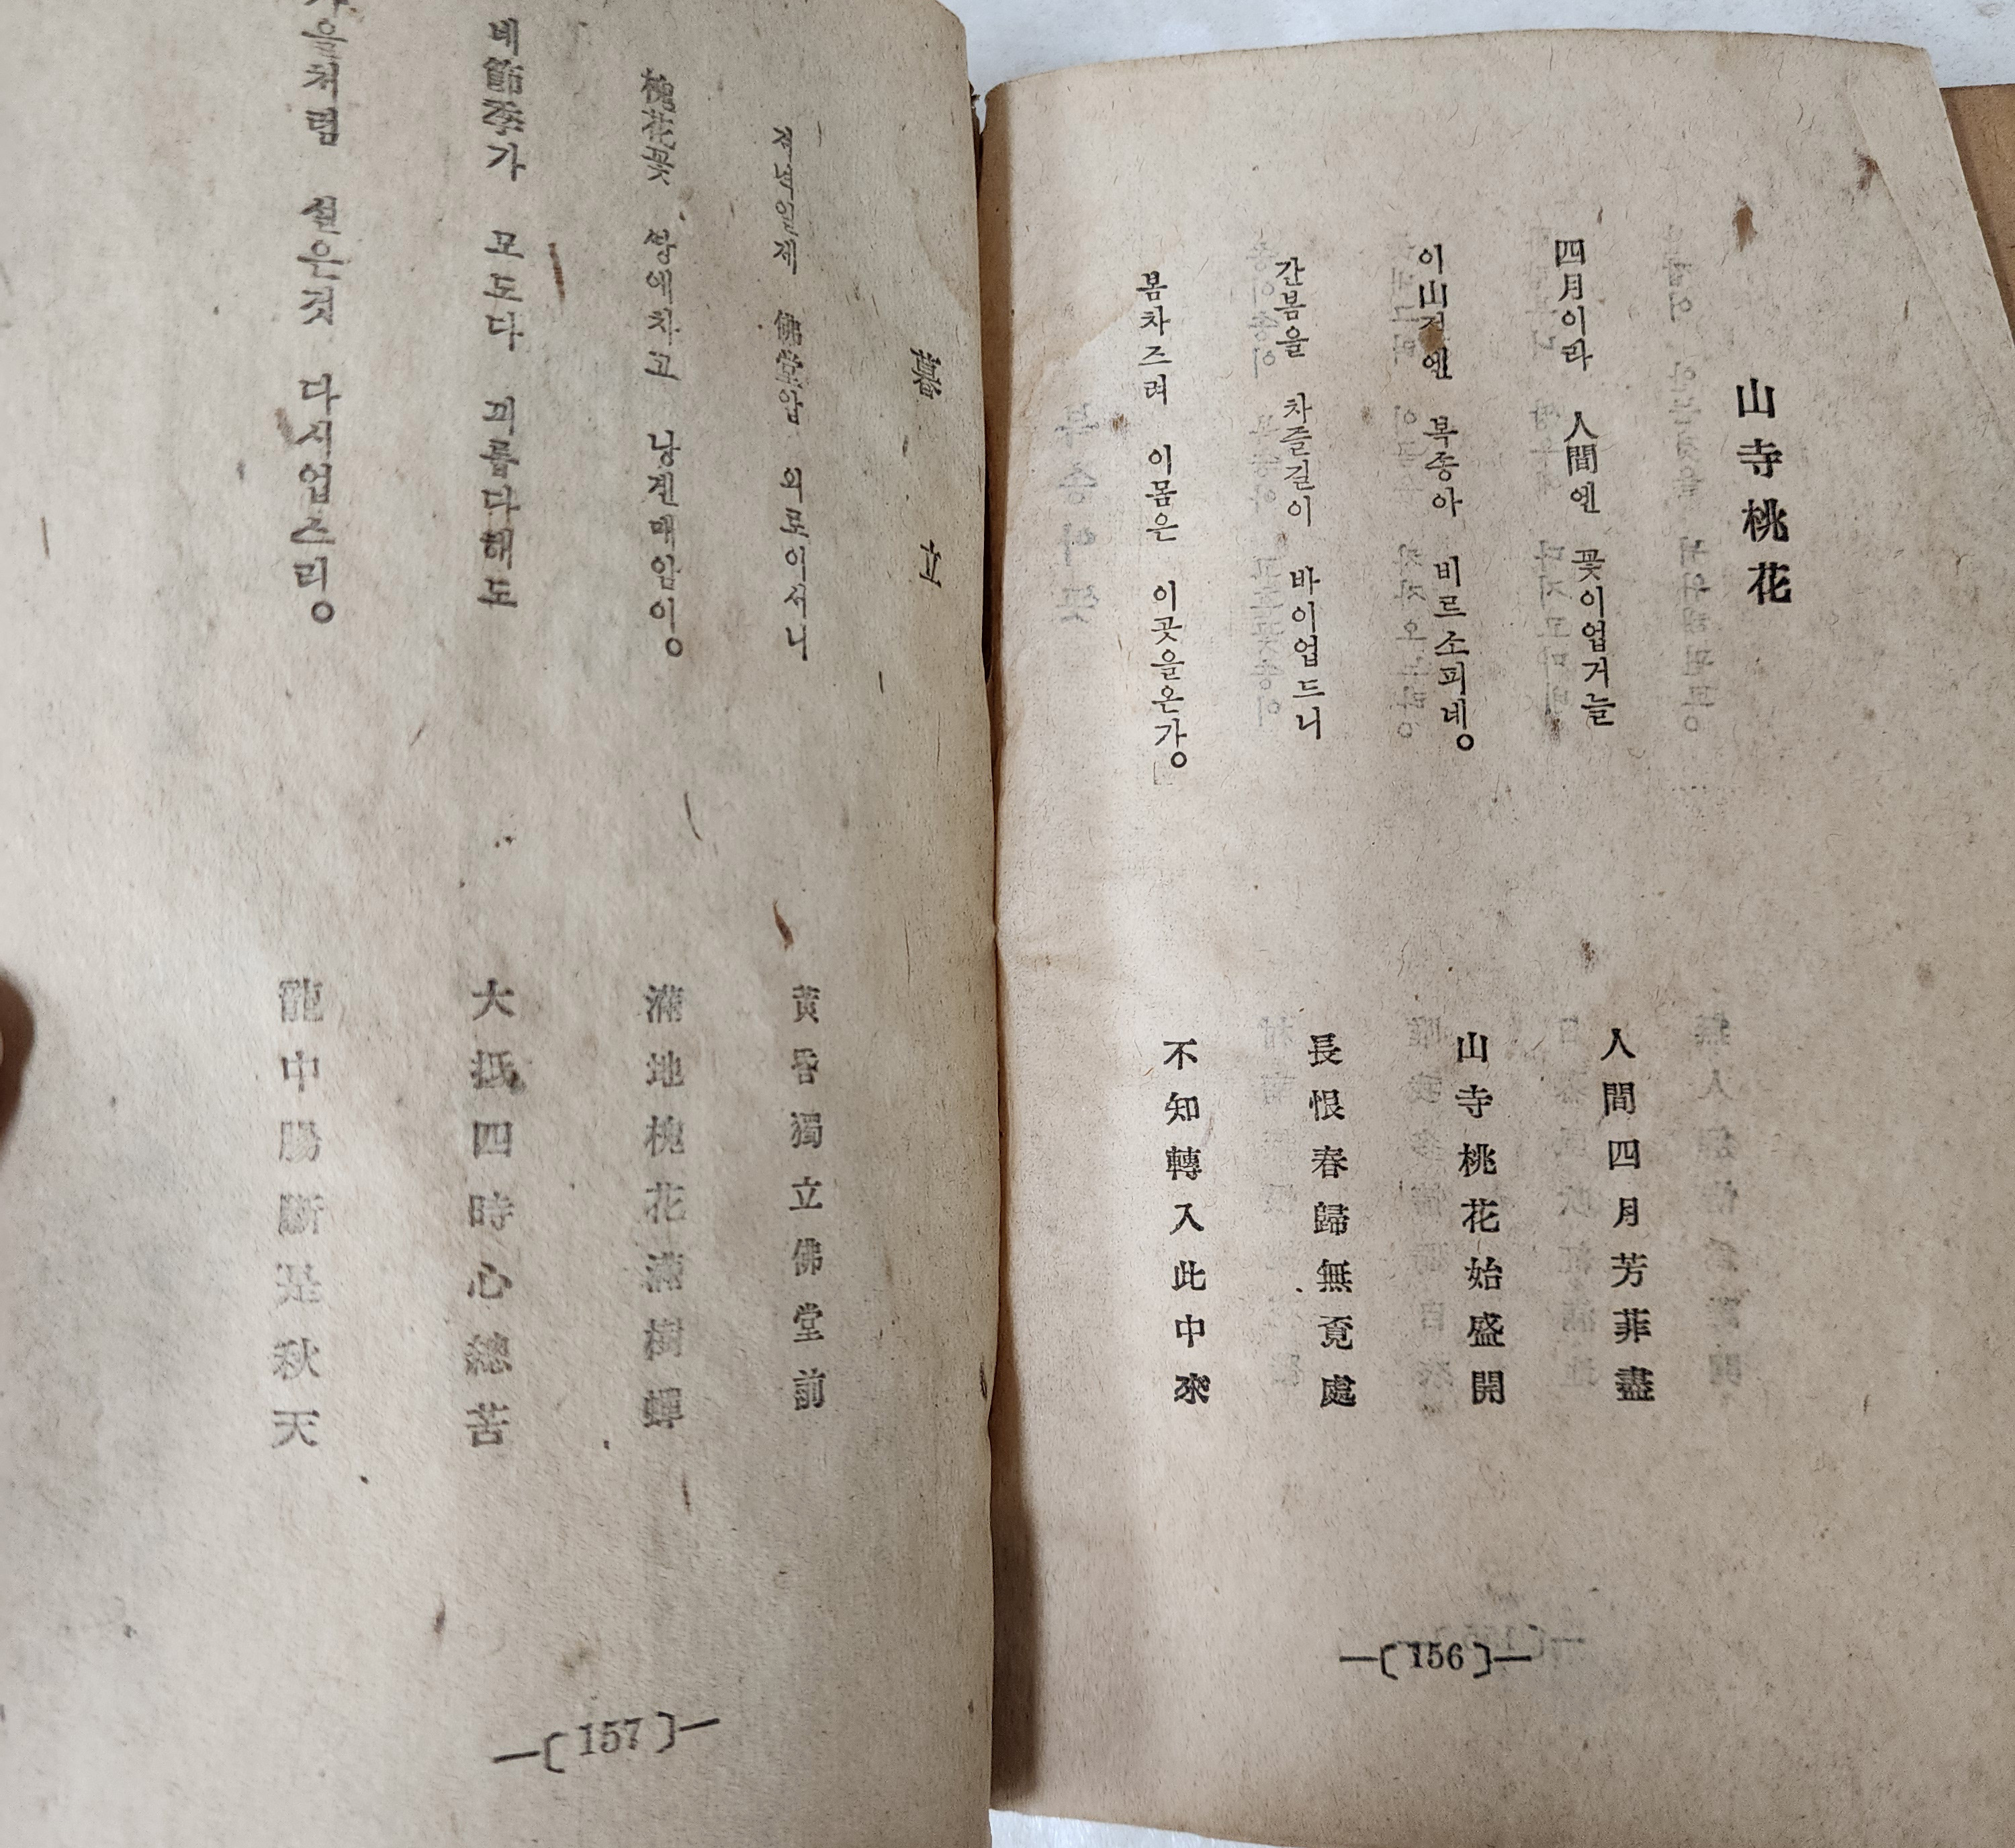 山寺桃花
四月이라 人間엔 꽃이업거늘
이山절엔 복종아 비르소피네。
간봄을 차즐길이 바이업드니
봄차즈려 이몸은 이곳을온가。」
人間四月芳菲盡
山寺桃花始盛開
長恨春歸無覔處
不知轉入此中來
—〔156〕—
暮立
저녁일제 佛堂압 외로이서니
槐花꽃 ᄯᅡᆼ에차고 낭겐매암이。
네節季가 모도다 괴롭다해도
을처럼 설은것 다시업스리。
黃昏獨立佛堂前
滿地槐花滿樹蟬
大抵四時心總苦
龍中腸斷是秋天
—〔157〕—